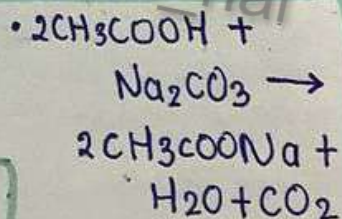 • 2CH3COOH +
Na2CO3 →
2CH3COONa +
H2O + CO2